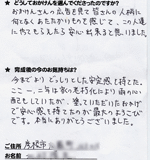 ★ どうしておかけんを選んでくださったのですか?
おかけんさんの広告を見て皆さんの人柄に
何となくあたたかいものを感じて、この人達
にやってもらえたら安心出来ると思いました。
★ 完成後の今のお気持ちは?
今までよりどっしりとした安定感で持てた。
ここ一、二年は家の老朽化により雨の心
配もしていたが、葺いていただいたおかげ
で安心感を持てたのが最大のよろこび
です。本当にありがとうございました。
ご住所 彦根市
お名前